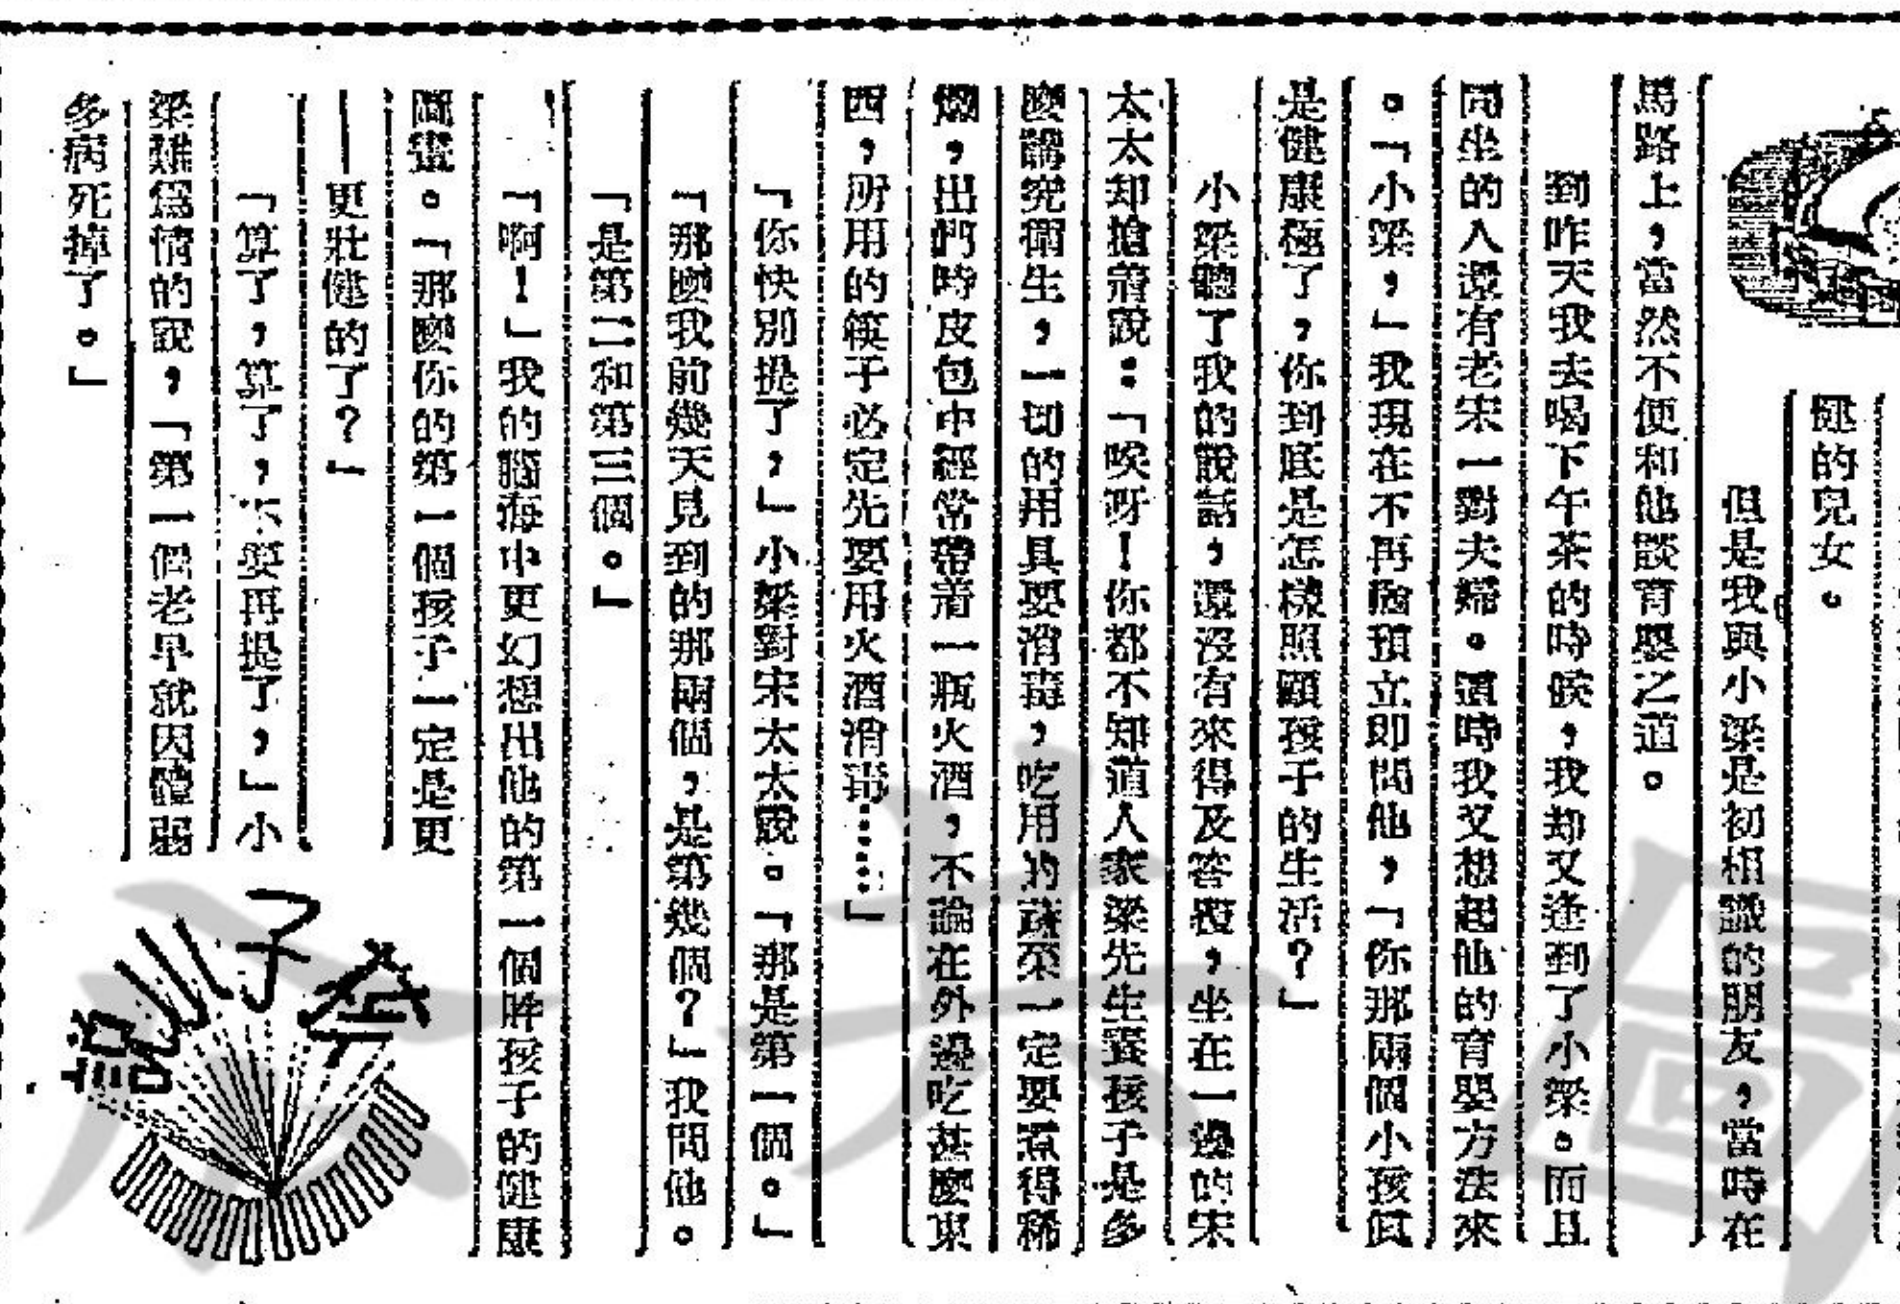 健的兒女。
但是我與小梁是初相識的朋友，當時在
馬路上，當然不便和他談育嬰之道。
到昨天我去喝下午茶的時候，我却又逢到了小梁。而且
同坐的人還有老宋一對夫婦。這時我又想起他的育嬰方法來
。「小梁，」我現在不再猶預立即問他，「你那兩個小孩眞
是健康極了，你到底是怎樣照顧孩子的生活？」
小梁聽了我的說話，還沒有來得及答覆，坐在一邊的宋
太太却搶着說：「唉呀！你都不知道人家梁先生養孩子是多
麼講究衛生，一切的用具要消毒，吃用的蔬菜一定要煮得稀
爛，出門時皮包中經常帶着一瓶火酒，不論在外邊吃甚麼東
西，所用的筷子必定先要用火酒消毒……」
「你快別提了，」小梁對宋太太說。「那是第一個。」
「那麼我前幾天見到的那兩個，是第幾個？」我問他。
「是第二和第三個。」
「啊！」我的腦海中更幻想出他的第一個胖孩子的健康
圖畫。「那麼你的第一個孩子一定是更
——更壯健的了？」
「算了，算了，不要再提了，」小
梁難爲情的說，「第一個老早就因體弱
多病死掉了。」